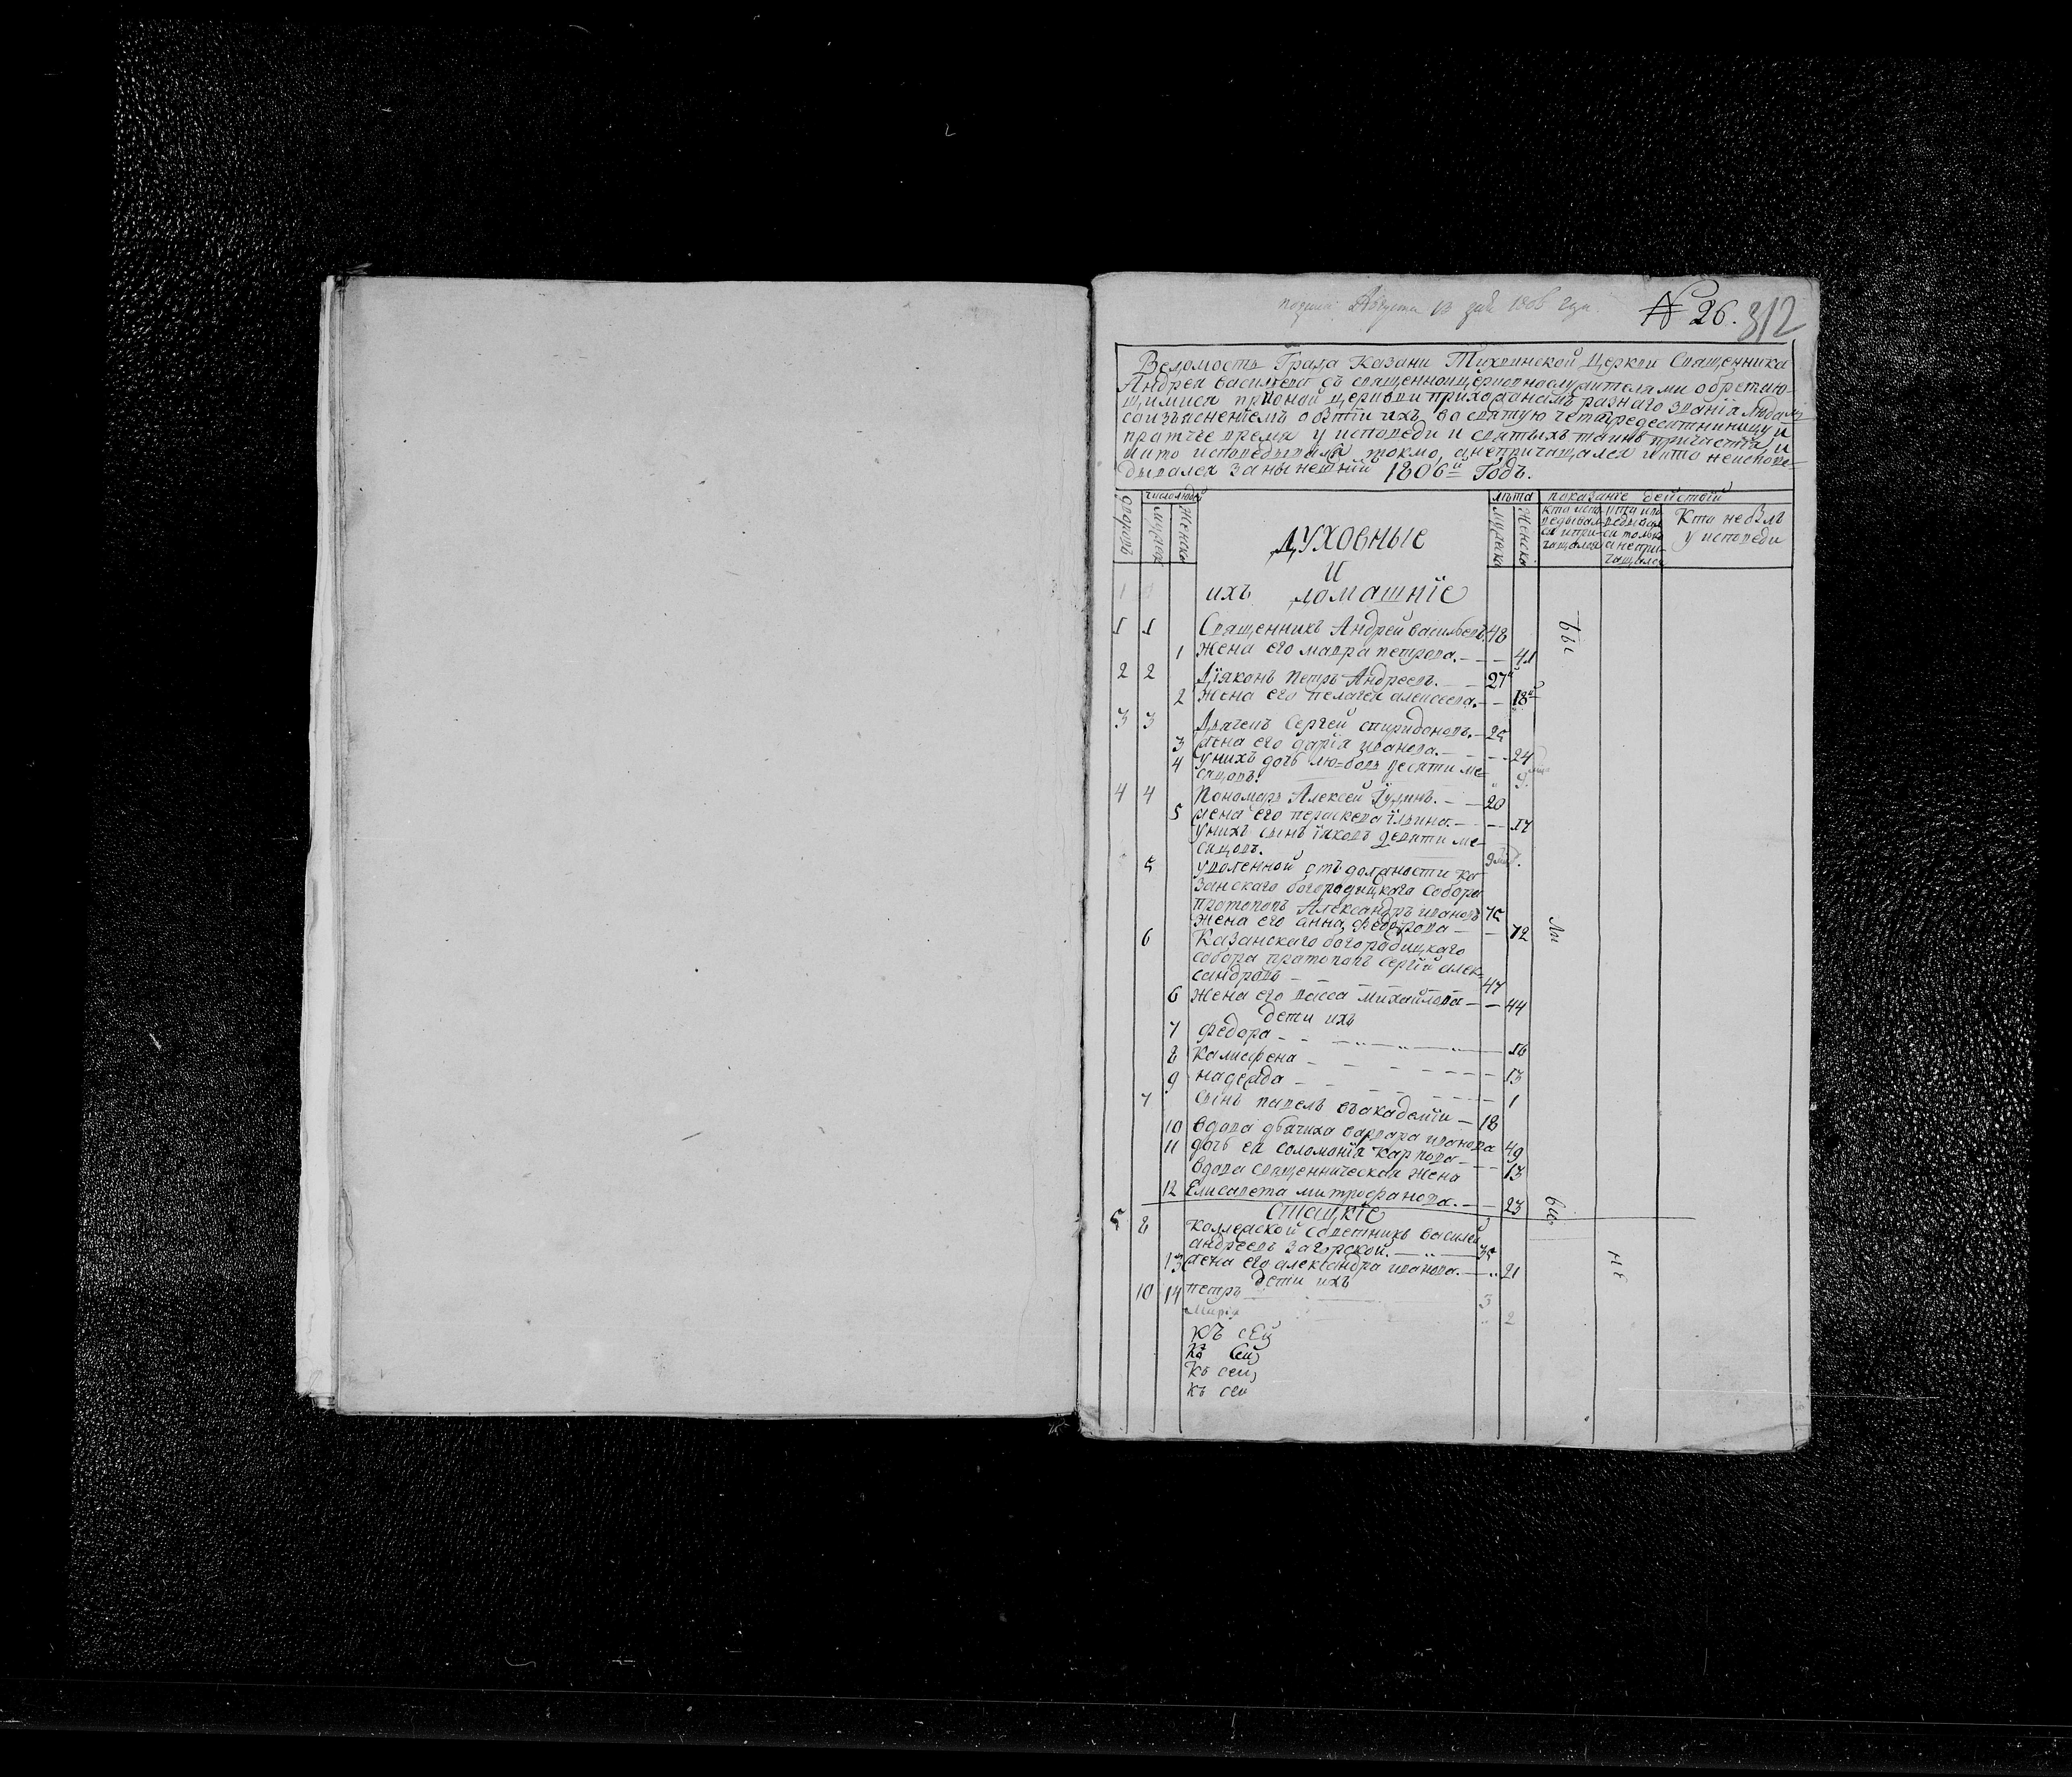 Августа 13 дня 1806 года.
№ 26. 312
Ведомость Града Казани Тихвинской Церкви Священника
Андрея васильева съ священноцерковнослужителями обретаю-
щимися при оной церькви прихожанамъ разнаго званїя людямъ
соизъяснениемъ о бытїи ихъ во святую четыредесятницу и
протчее время у исповеди и святыхъ таинъ причастїя и
кто исповедывался токмо, а непричащался и кто неиспове-
дывался за нынешний 1806й Годъ.
число людей лѣта показанїе действїй
дворовъ мужеска женска
мужеска женска
кто испо-
ведывал-
ся и при-
чащался
кто испо-
ведывал-
ся только
а непри-
чащался
Кто не былъ
у исповеди
духовные
и
ихъ домашнїе
1 1 Священникъ Андрей васильевъ 48
1 Жена его мавра петрова. 41
2 2 Дїаконъ Петръ Андреевъ. 27
2 Жена его пелагея алексеева. 18
3 3 Дьячекъ Сергей спиридоновъ. 25
3 Жена его дарїя иванова. 24
4 У нихъ дочь любовь десяти ме-
сяцовъ. 9
4 4 Пономарь Алексей 20
5 Жена его параскева їльина. 17
У нихъ сынъ їяковъ девяти ме-
сяцовъ. 9
5 уволенной отъ должности ка-
занскаго богородицкаго Собора
протопопъ Александръ ивановъ 75
Жена его анна федорова 72
6 Казанскаго богородицкаго
собора протопопъ Сергїй алек-
сандровъ 47
6 Жена его васса михайлова 44
Дети ихъ
7 Федора 16
8 Калисфена 13
9 надежда 1
7 Сынъ павелъ въ академїи 18
10 вдова дьячиха варвара иванова 49
11 дочь ея соломонїя карпова 13
вдова священническая жена
12 Елисавета митрофанова. 23
Стацкїе
5 8 Коллежской Советникъ василей
андреевъ Загорской. 35
13 Жена его александра иванова. 21
Дети ихъ
10 14 петръ 3
Марїя 2
Къ сей
Къ сей
Къ сей
Къ сей
бы
ли
бы
не